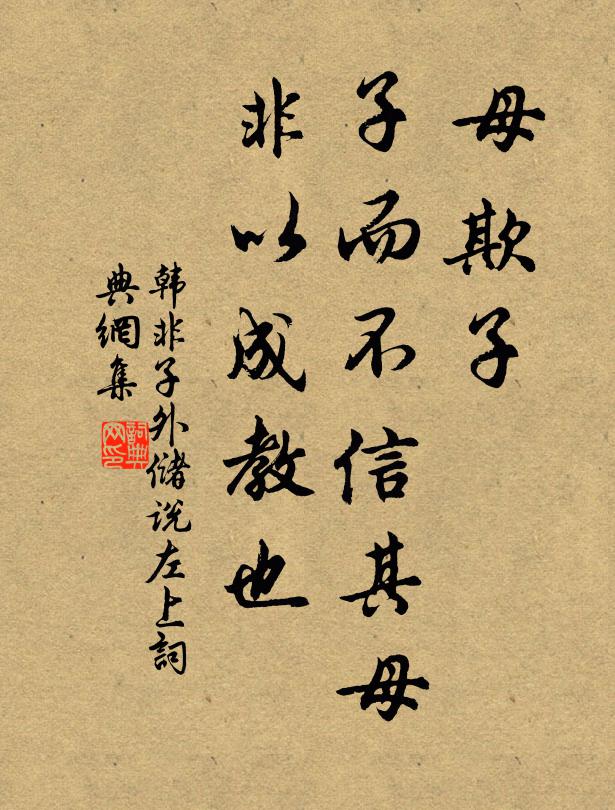 母欺子
子而不信其母
非以成教也
韩非子外儲说左上詞
典網集
詞典
网印